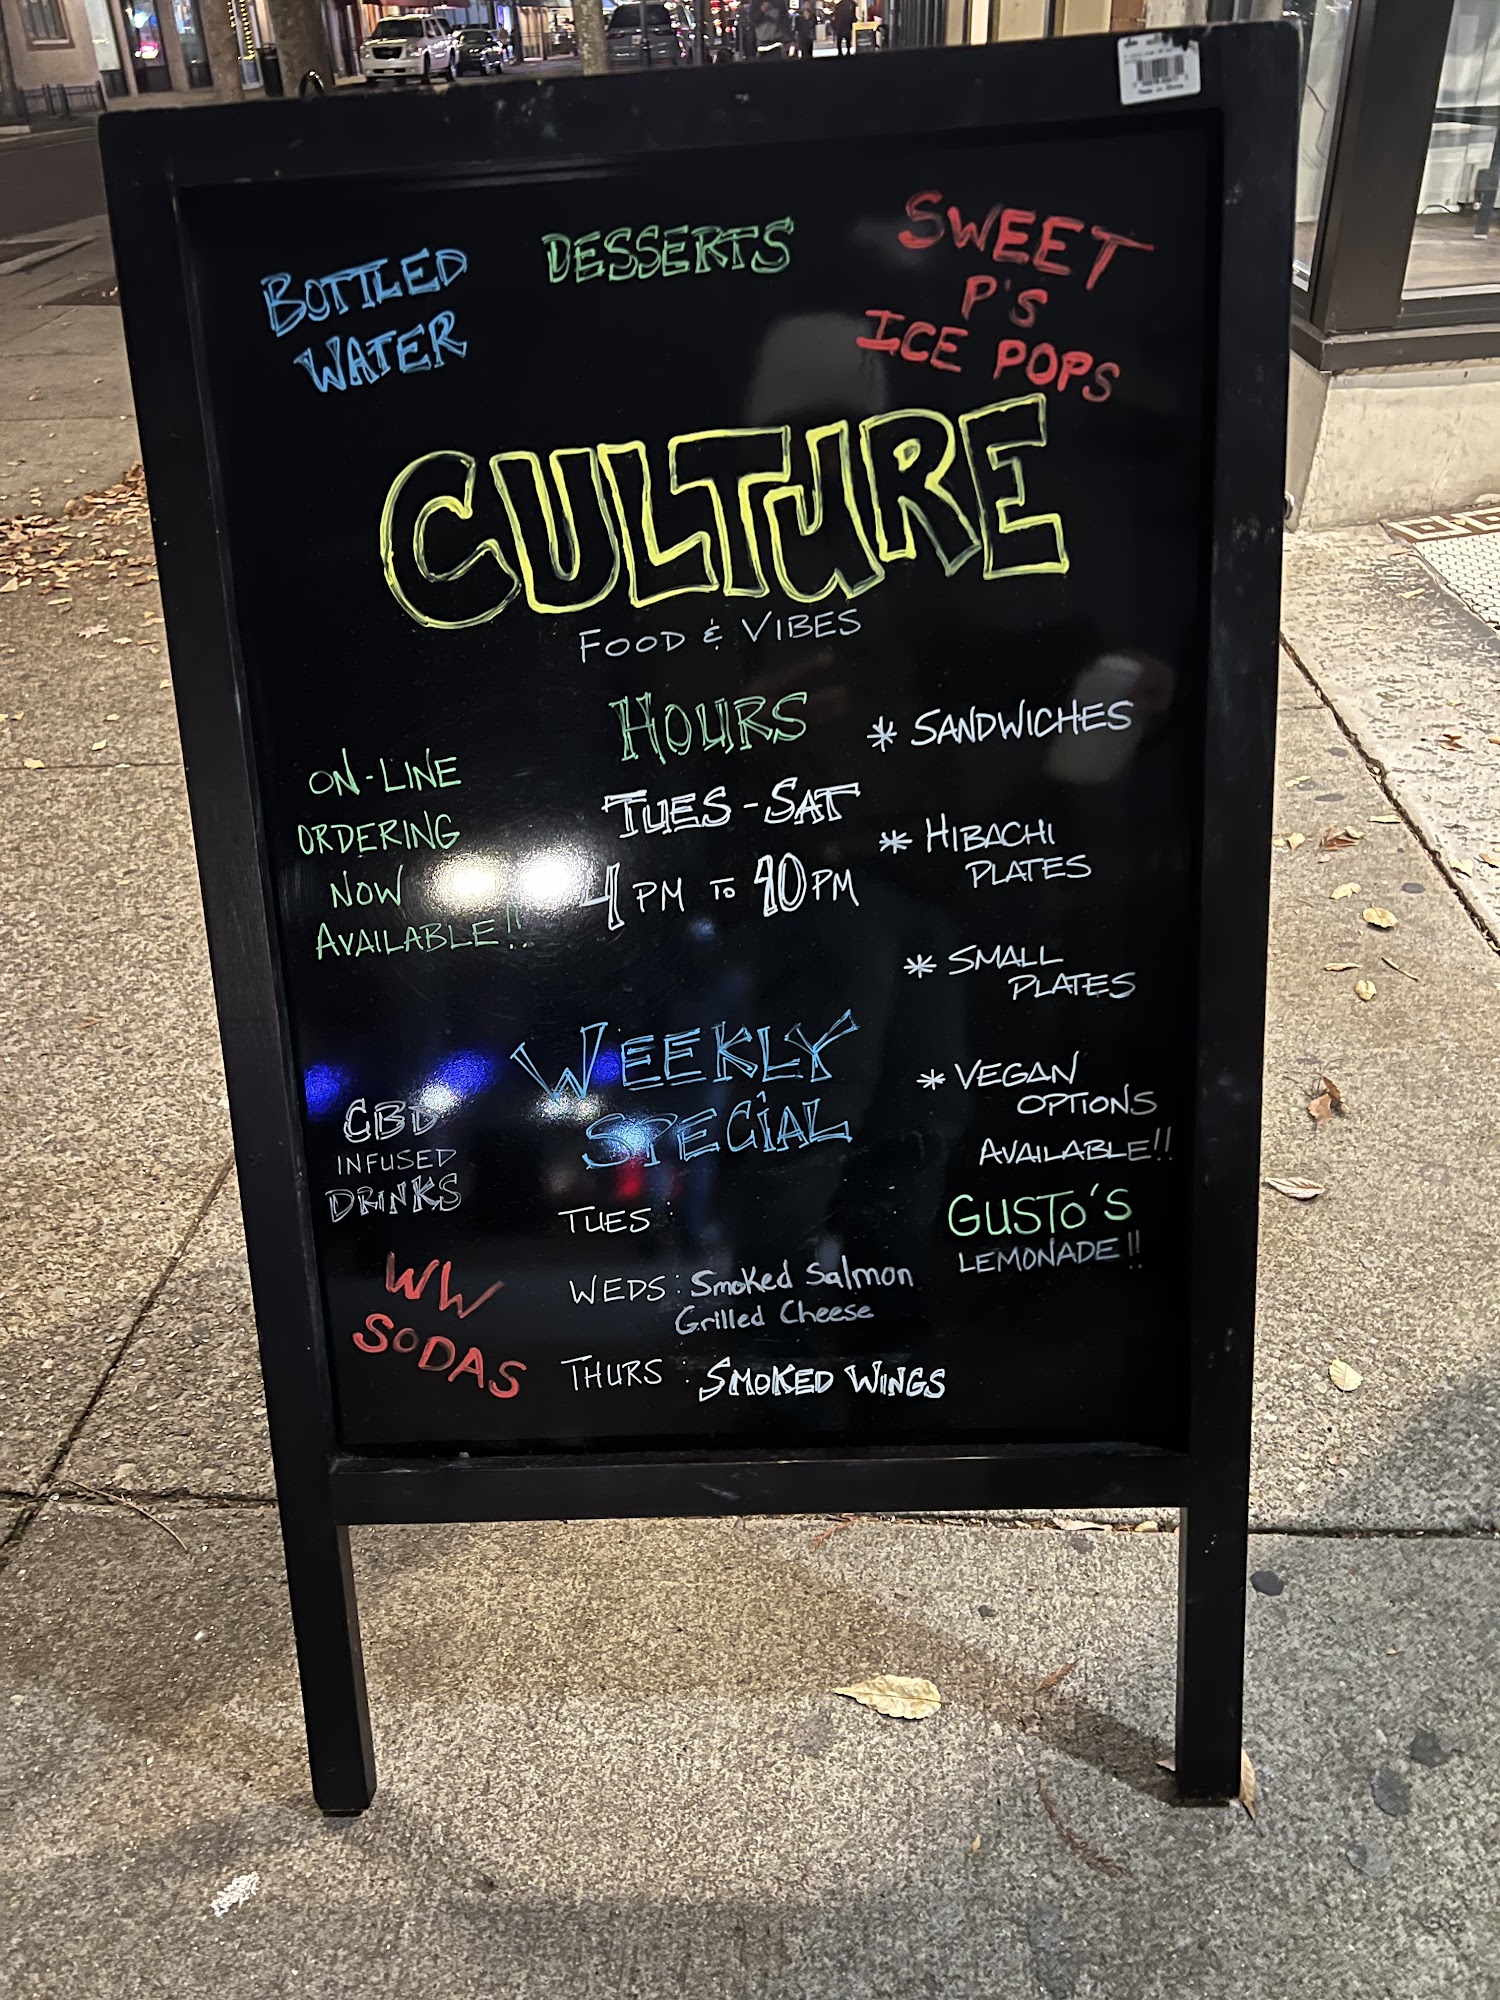 BOTTLED
WATER
DESSERTS
SWEET
P'S
ICE POPS
CULTURE
FOOD & VIBES
ON-LINE
ORDERING
NOW
AVAILABLE!!
HOURS
TUES-SAT
4PM TO 10PM
* SANDWICHES
* HIBACHI
PLATES
* SMALL
PLATES
* VEGAN
OPTIONS
AVAILABLE!!
GUSTO'S
LEMONADE!!
CBD
INFUSED
DRINKS
WW
SODAS
WEEKLY
SPECiAL
TUES:
WEDS: Smoked Salmon
Grilled Cheese
THURS: SMOKED WINGS